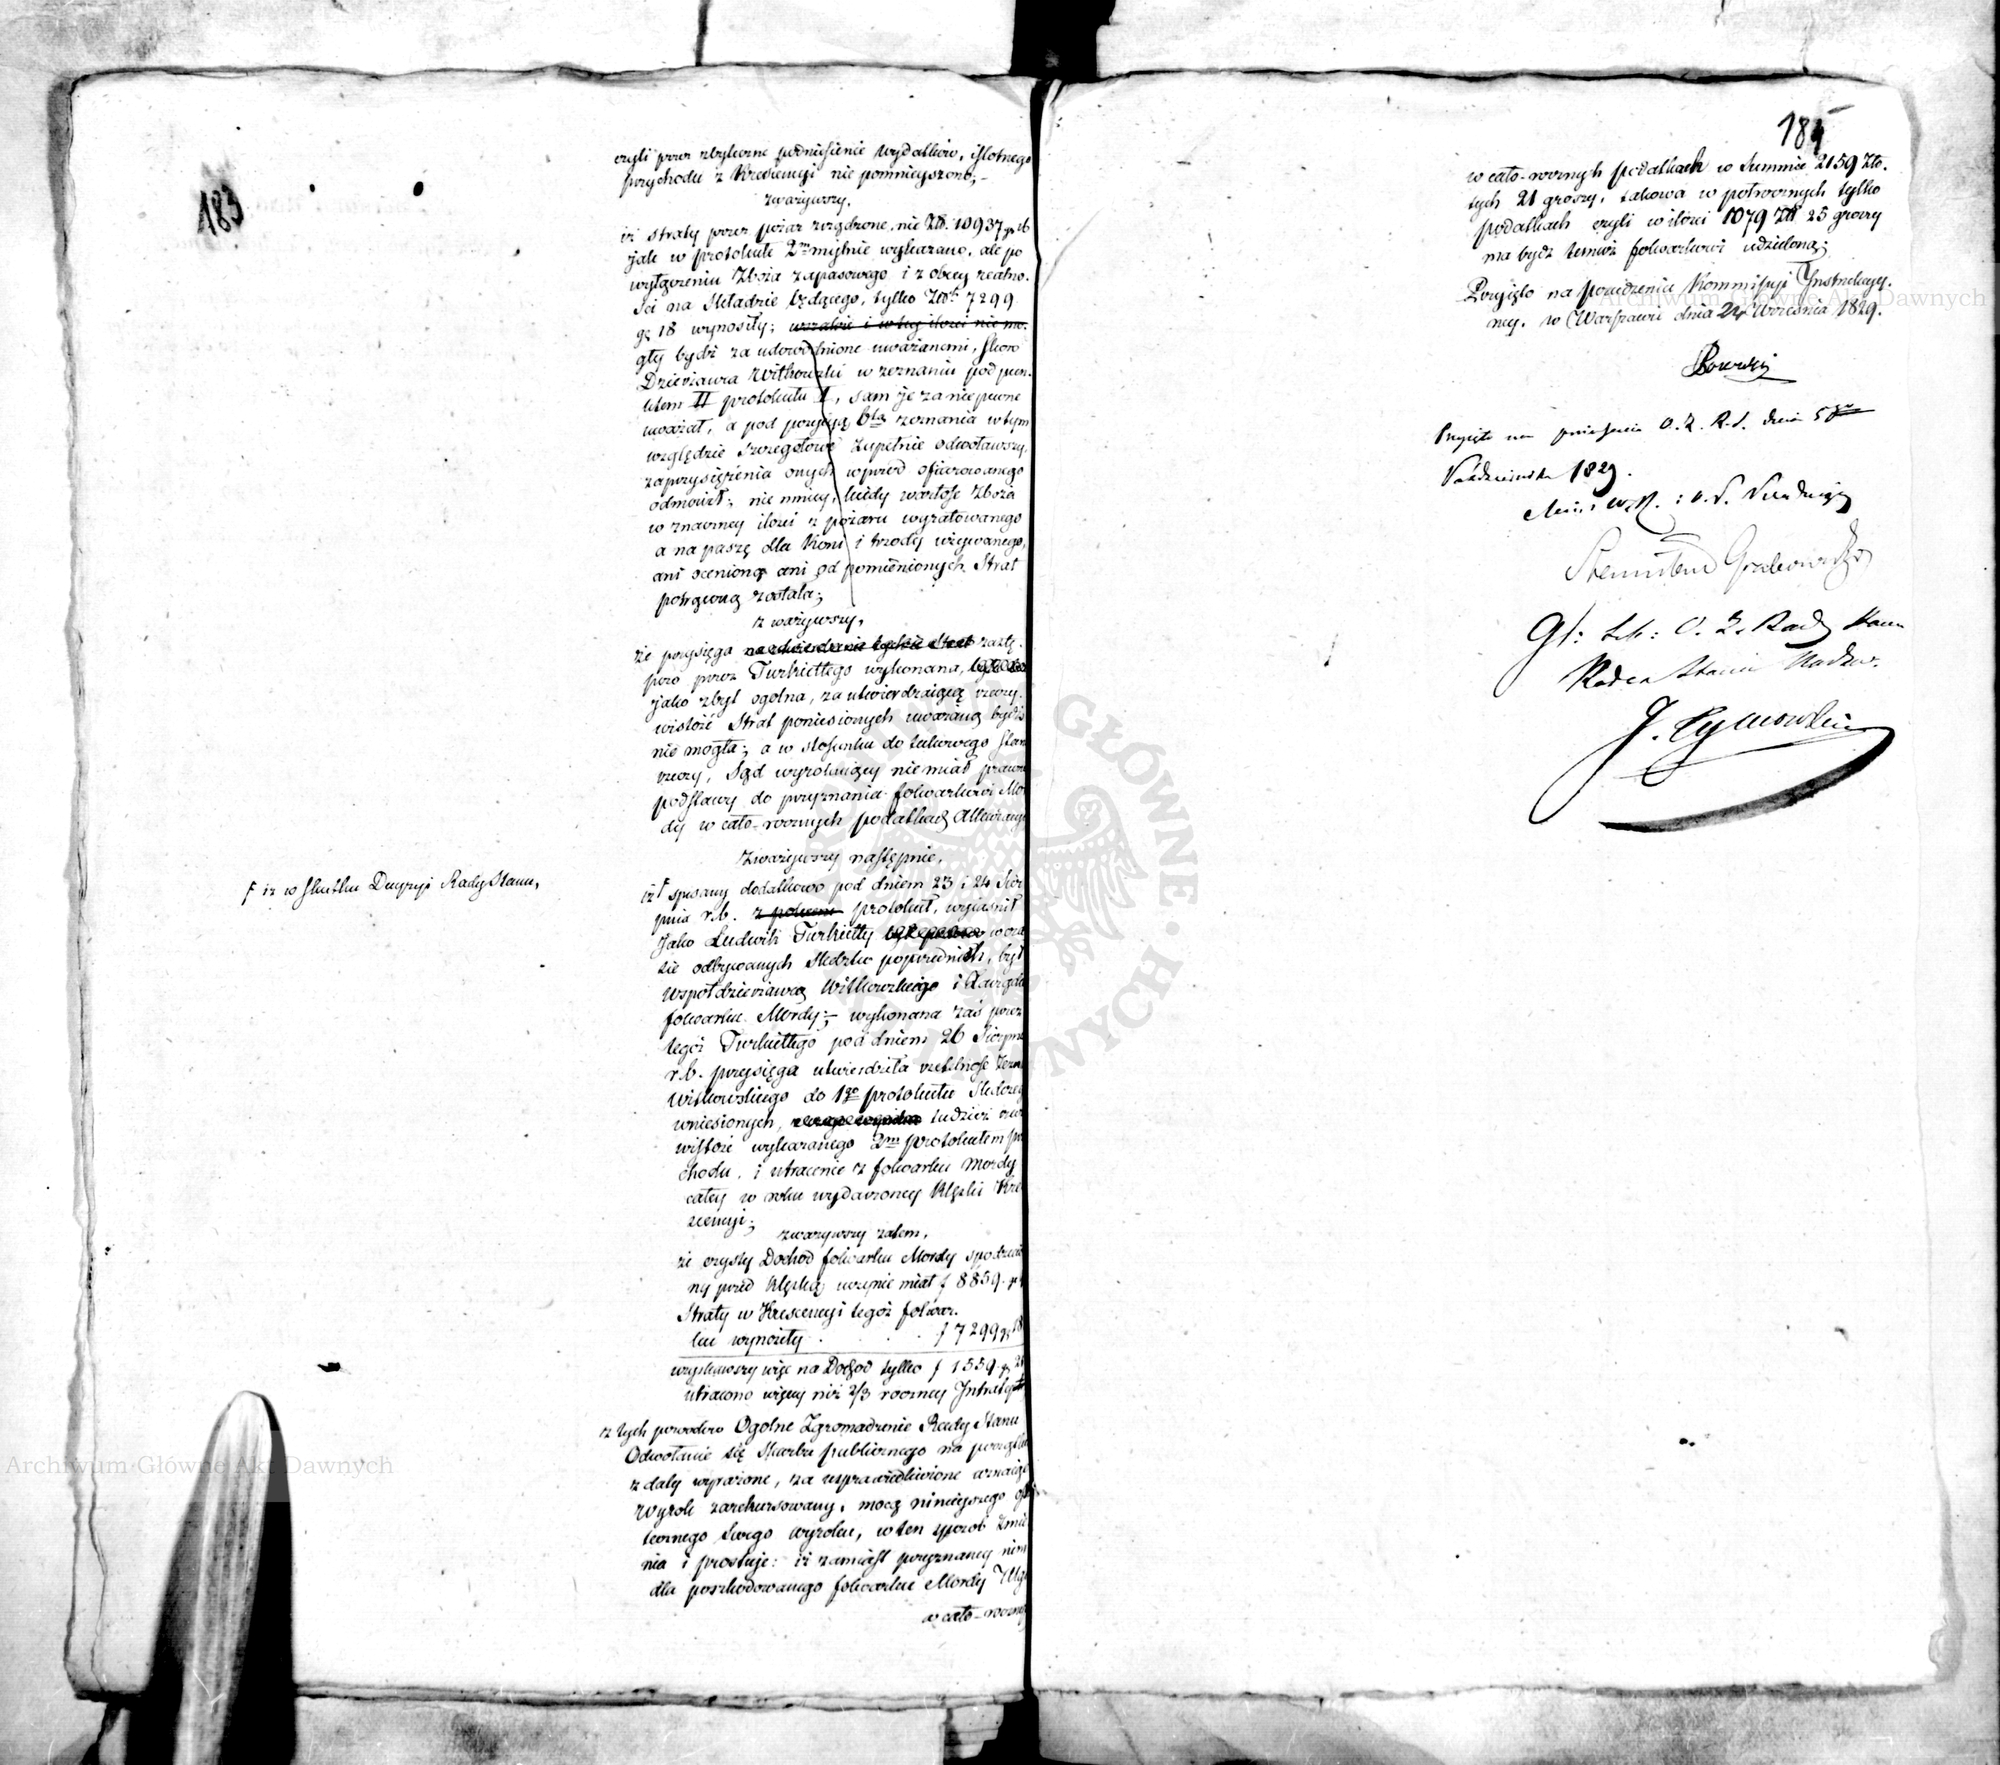 183
czyli przez zbyteczne podniesienie wydatków, istotnego
przychodu z Krescencyi nie pomnieyszono; –
zważywszy,
iż straty przez pożar zrządzone, nie Złt. 10937 gr 26
jak w protokule 2m mylnie wykazano, ale po
wyłączeniu Zboża zapasowego i z obcey realno-
ści na składzie będącego, tylko Złot. 7299
gr 18 wynosiły; wszakże i w tey ilości nie mo-
gły bydź za udowodnione uważanemi, skoro
Dzierżawca Witkowski w zeznaniu pod punk-
tem II protokułu I, sam je za niepewne
uważał, a pod pozycyą 6tą zeznania w tym
względzie szczegółowe zupełnie odwoławszy,
zaprzysiężenia onych wprzód ofiarowanego
odmówił; nie mniey, kiedy wartość Zboża
w znaczney ilości z pożaru wyratowanego
a na paszę dla Koni i trzody używanego,
ani ocenioną ani od pomienionych Strat
potrąconą została;
zważywszy,
że przysięga na stwierdzenie tychże Strat zastę-
pczo przez Turkiettego wykonana,
jako zbyt ogólna, za utwierdzaiącą rzeczy-
wistość Strat poniesionych uważaną bydź
nie mogła; a w stosunku do takowego stan
rzeczy, Sąd wyrokuiący nie miał prawn
podstawy do przyznania folwarkowi Mor
dy w cało-rocznych podatkach Allewiacyi
zważywszy następnie,
F iż w skutku Decyzyi Rady Stanu,
iż F spisany dodatkowo pod dniem 23 i 24 Sier
pnia r.b. z powodu protokuł, wyiaśnił
jako Ludwik Turkietty w cza
sie odbywanych śledztw poprzednich, był
Wspołdzierżawcą Witkowskiego i Zarządcą
folwarku Mordy; – wykonana zaś przez
tegoż Turkiettego pod dniem 26 Sierpnia
r.b. przysięga utwierdziła rzetelność zezn
Witkowskiego do 1go protokułu śledcze
wniesionych, tudzież rzec
wistość wykazanego 2m protokułem prz
chodu, i utracenie z folwarku Mordy
całey w roku wydarzoney Klęski Kre
scencyi;
zważywszy zatem,
że czysty Dochód folwarku Mordy spodziewa
ny przed Klęską uczynić miał f 8859 gr
Straty w Krescencyi tegoż folwar-
ku wynosiły . . . f 7299 gr 18
uzyskawszy więc na Dochód tylko f 1559 gr 2
utracono więcey niż 2/3 roczney Intraty
z tych powodów Ogólne Zgromadzenie Rady Stanu
Odwołanie się Skarbu publicznego na początku
z daty wyrażone, za usprawiedliwione uznaiąc
Wyrok zarekursowany, mocą ninieyszego osta
tecznego swego Wyroku, w ten sposób zmie
nia i prostuje: iż zamiast przyznaney nim
dla poszkodowanego folwarku Mordy Ulgi
w cało-roczny
184
w cało-rocznych podatkach w Summie 2159 Zło-
tych 21 groszy, takowa w półrocznych tylko
podatkach czyli w ilości 1079 Złt 25 groszy
ma bydź temuż folwarkowi udzieloną;
Przyięto na posiedzeniu Kommissyi Instrukcyj-
ney, w Warszawie dnia 24 Września 1829.
Przyięto na posiedzeniu O. Z. R. S. dnia 5go
Października 1829.
Stanisław Grabowski
Gł: Sek: O. Z. Rady Stanu
Radca Stanu Nadzw.
J. Tymowski
Archiwum Główne Akt Dawnych
Archiwum Główne Akt Dawnych